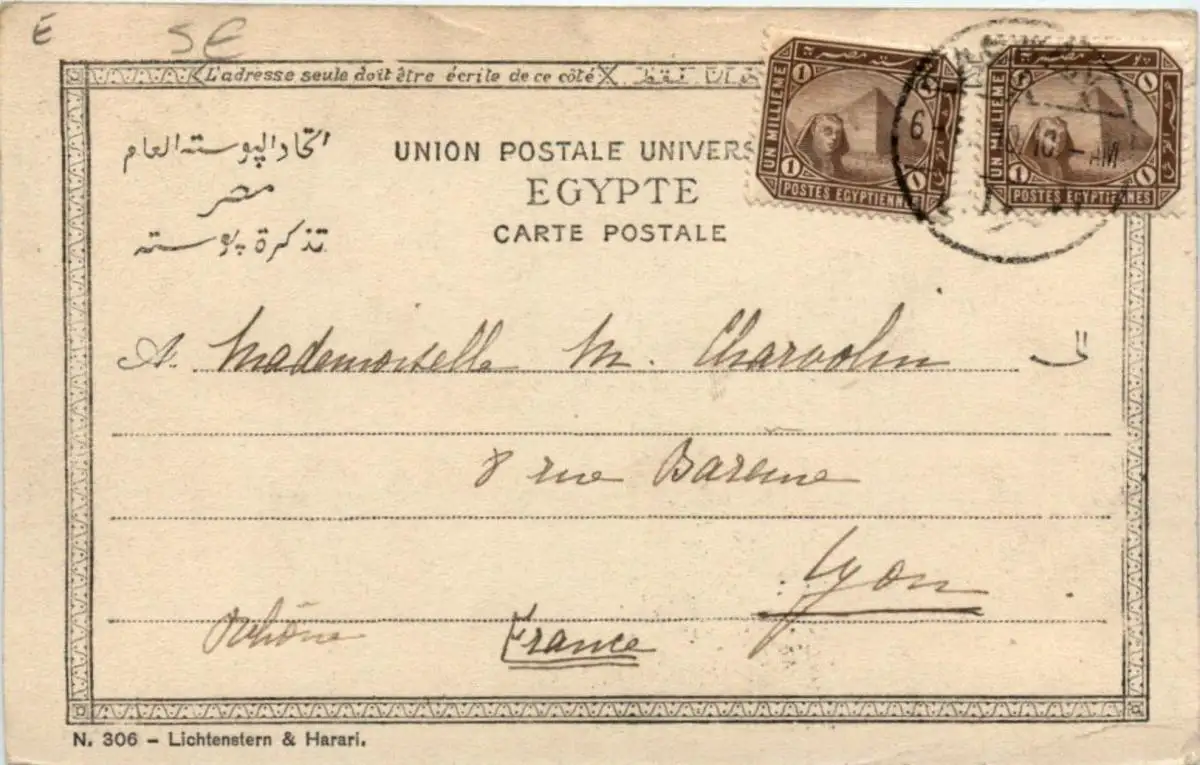 E
SE
L'adresse seule doit être écrite de ce côté
اتحاد البوسته العام
مصر
تذكرة بوسته
UNION POSTALE UNIVERS
EGYPTE
CARTE POSTALE
1 1
UN MILLIEME
1 1
POSTES EGYPTIENNES
1 1
UN MILLIEME
1 1
POSTES EGYPTIENNES
6
10 - AM
A. Mademoiselle M. Charvolin الى
8 rue Barême
Lyon
Rhône France
N. 306 - Lichtenstern & Harari.